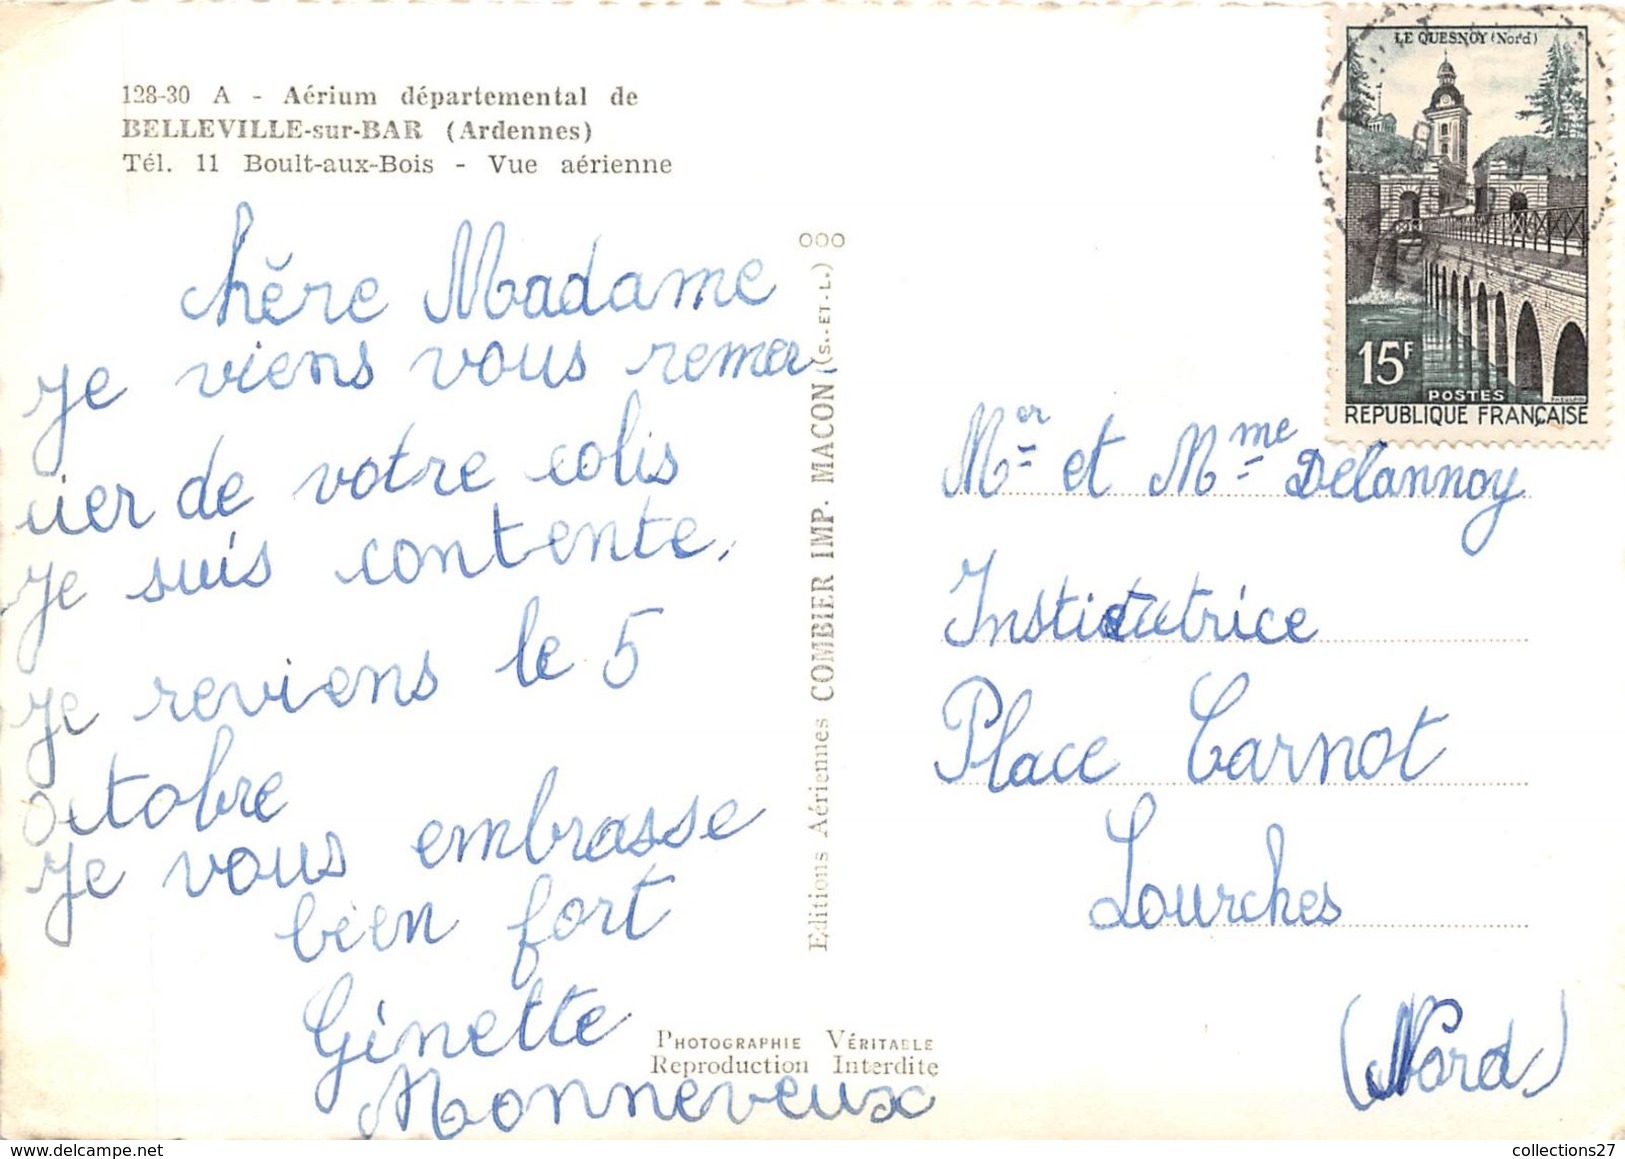 128-30 A - Aérium départemental de
BELLEVILLE-sur-BAR (Ardennes)
Tél. 11 Boult-aux-Bois - Vue aérienne
chère Madame
Je viens vous remer
cier de votre colis
Je suis contente,
Je reviens le 5
Octobre
Je vous embrasse
bien fort
Ginette
Monneveux
Editions Aériennes COMBIER IMP. MACON (S.-ET-L.) 000
PHOTOGRAPHIE VÉRITABLE
Reproduction Interdite
LE QUESNOY (Nord)
15F
POSTES
REPUBLIQUE FRANÇAISE
Mer et Mme Delannoy
Institutrice
Place Carnot
Lourches
(Nord)
collections27